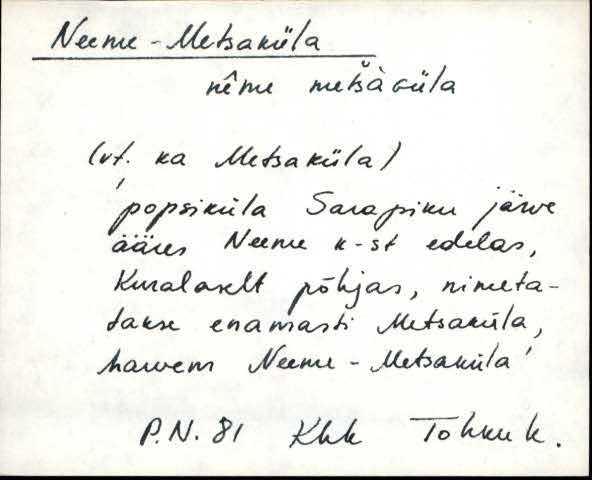 Neeme-Metsaküla
nême metsàküla
(vt. ka Metsaküla)
'popsiküla Sarapiku järve
ääres Neeme k-st edelas,
Kuralaselt põhjas, nimeta-
takse enamasti Metsaküla,
harvem Neeme-Metsaküla'
P.N. 81 Khk Tohku k.